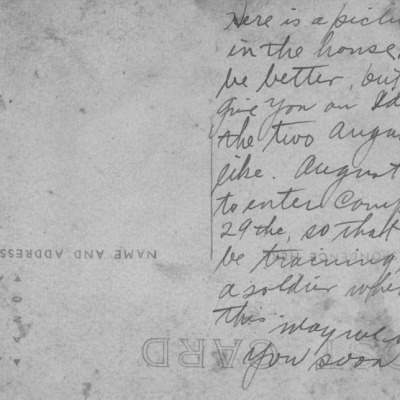 Here is a pictu
in the house,
be better, but
give you an Id
the two Augu
like. August
to enter Camp
29the, so that
be training
a soldier whe
this may rea
you soon
NAME AND ADDRESS
CARD